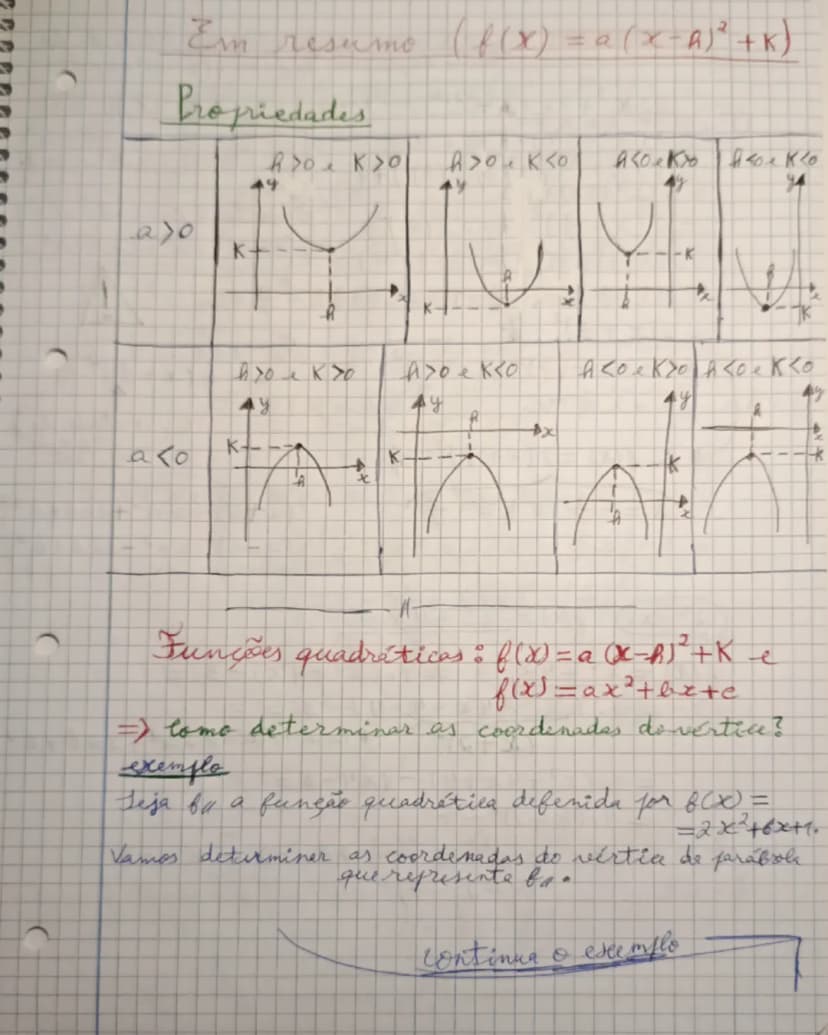 Em resumo (f(x) = a(x-h)² + K)
Propriedades
h>0 e K>0
h>0 e K<0
h<0 e K>0
h<0 e K<0
a>0
y
K
h
x
y
h
K
x
y
K
h
x
y
h
x
K
h>0 e K>0
h>0 e K<0
h<0 e K>0
h<0 e K<0
a<0
y
K
h
x
y
h
x
K
y
K
h
x
y
h
x
K
Funções quadráticas: f(x) = a (x-h)² + K e
f(x) = ax² + bx + c
=> Como determinar as coordenadas do vértice?
exemplo
Seja f,, a função quadrática defenida por f(x) =
= 2x² + 6x + 1.
Vamos determiner as coordenadas do vértice de parábola
que representa f,,.
continua o exemplo